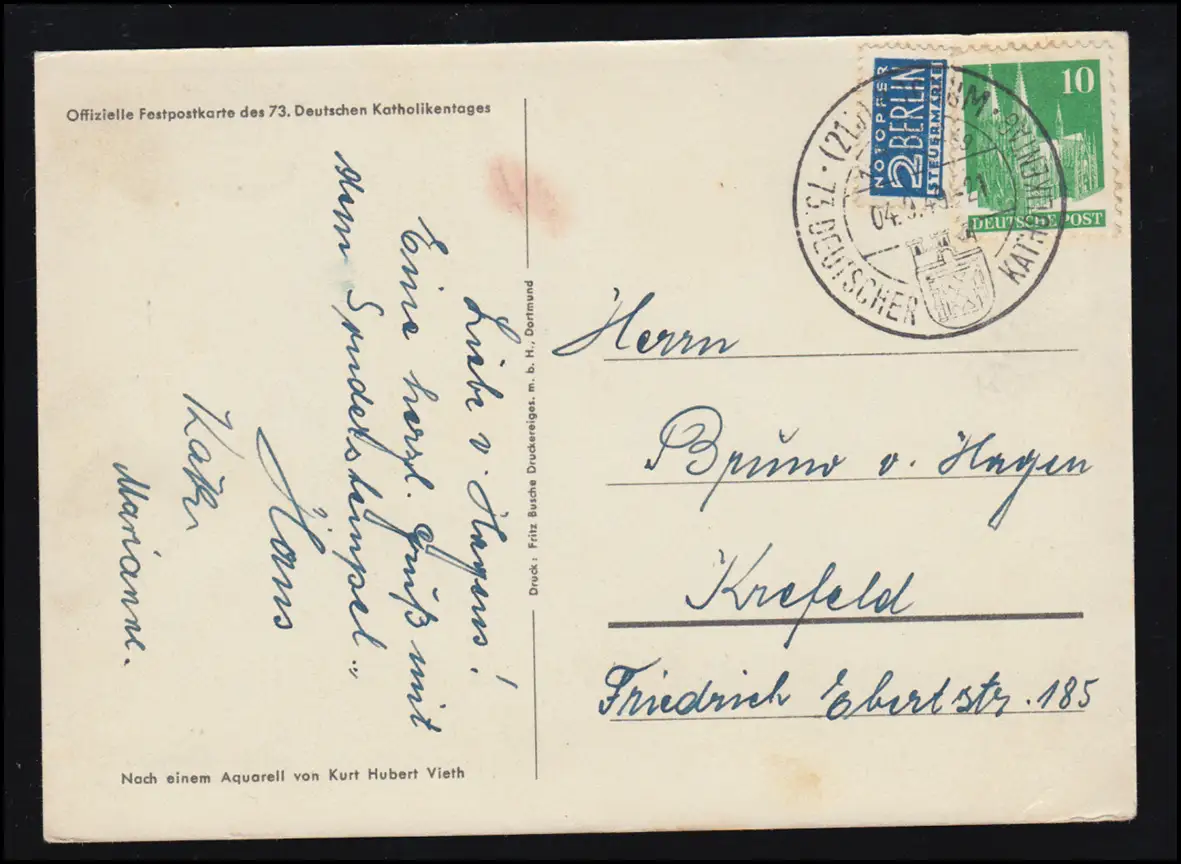 Offizielle Festpostkarte des 73. Deutschen Katholikentages
Liebe v. Hagens!
Eine herzl. Gruß mit
dem Sonderstempel"
Hans
Käthe
Marianne.
Nach einem Aquarell von Kurt Hubert Vieth
Druck: Fritz Busche Druckereiges. m. b. H., Dortmund
NOTOPFER
2 BERLIN
STEUERMARKE
10
DEUTSCHE POST
73. DEUTSCHER
04.9.49.-21
Herrn
Bruno v. Hagen
Krefeld
Friedrich Ebertstr. 185